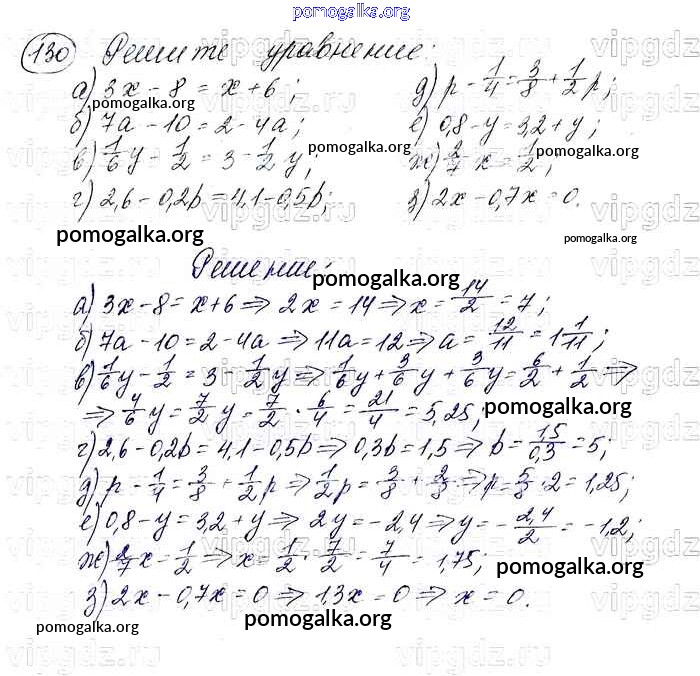 pomogalka.org
130 Решите уравнение:
а) 3x - 8 = x + 6;
pomogalka.org
б) 7a - 10 = 2 - 4a;
в) 1/6 y - 1/2 = 3 - 1/2 y;
г) 2,6 - 0,2b = 4,1 - 0,5b;
pomogalka.org
д) p - 1/4 = 3/8 + 1/2 p;
е) 0,8 - y = 3,2 + y;
pomogalka.org
ж) 2/7 x = 1/2;
pomogalka.org
з) 2x - 0,7x = 0.
pomogalka.org
Решение:
pomogalka.org
а) 3x - 8 = x + 6 ⇒ 2x = 14 ⇒ x = 14/2 = 7;
б) 7a - 10 = 2 - 4a ⇒ 11a = 12 ⇒ a = 12/11 = 1 1/11;
в) 1/6 y - 1/2 = 3 - 1/2 y ⇒ 1/6 y + 3/6 y + 3/6 y = 6/2 + 1/2 ⇒
⇒ 4/6 y = 7/2 y = 7/2 · 6/4 = 21/4 = 5,25;
pomogalka.org
г) 2,6 - 0,2b = 4,1 - 0,5b ⇒ 0,3b = 1,5 ⇒ b = 1,5/0,3 = 5;
д) p - 1/4 = 3/8 + 1/2 p ⇒ 1/2 p = 3/8 + 2/8 ⇒ p = 5/8 · 2 = 1,25;
е) 0,8 - y = 3,2 + y ⇒ 2y = -2,4 ⇒ y = - 2,4/2 = -1,2;
ж) 2/7 x - 1/2 ⇒ x = 1/2 · 7/2 = 7/4 = 1,75;
pomogalka.org
з) 2x - 0,7x = 0 ⇒ 1,3x = 0 ⇒ x = 0.
pomogalka.org
pomogalka.org
vipgdz.ru